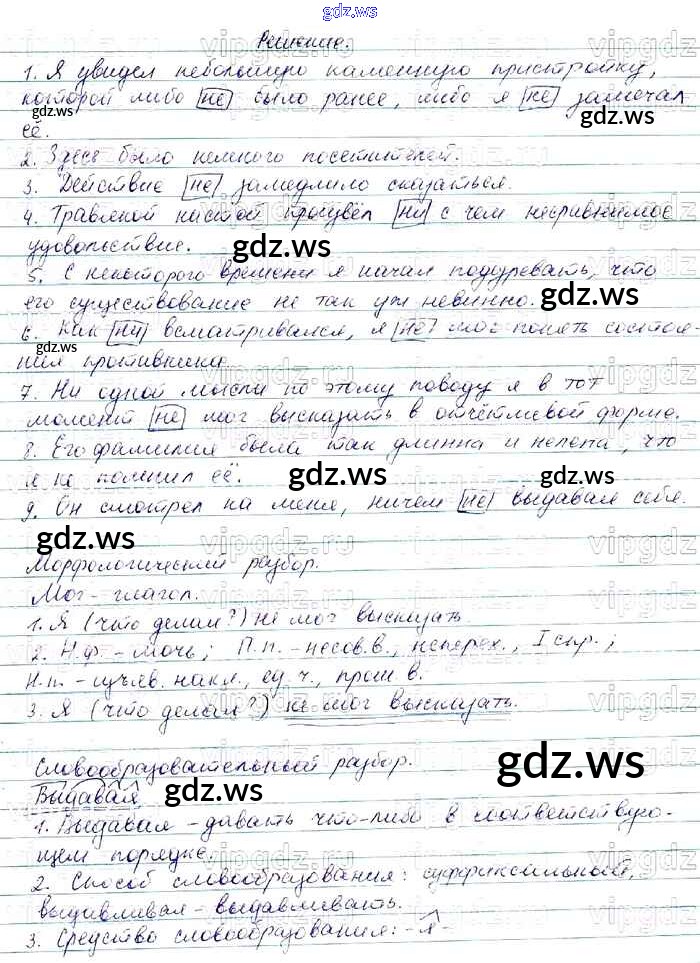 gdz.ws
Решение.
1. Я увидел небольшую каменную пристройку,
которой либо не было ранее, либо я не замечал
её.
gdz.ws
gdz.ws
2. Здесь было немного посетителей.
3. Действие не замедлило сказаться.
4. Травяной настой произвёл ни с чем несравнимое
удовольствие.
gdz.ws
5. С некоторого времени я начал подозревать, что
его существование не так уж невинно.
gdz.ws
6. Как ни всматривался, я не мог понять состоя-
ния противника.
gdz.ws
7. Ни одной мысли по этому поводу я в тот
момент не мог высказать в отчётливой форме.
8. Его фамилия была так длинна и нелепа, что
я не помнил её.
gdz.ws
gdz.ws
9. Он смотрел на меня, ничем не выдавая себя.
gdz.ws
Морфологический разбор.
Мог - глагол.
1. Я (что делал?) не мог высказать.
2. Н.ф. - мочь; П.п. - несов.в., неперех., I спр.;
Н.п. - изъяв. накл., ед.ч., прош.в.
3. Я (что делал?) не мог высказать.
Словообразовательный разбор.
gdz.ws
Выдавая
gdz.ws
1. Выдавая - давать что-либо в соответствую-
щем порядке.
2. Способ словообразования: суффиксальный,
выдавливая - выдавливать.
3. Средство словообразования: -я-
vipgdz.ru